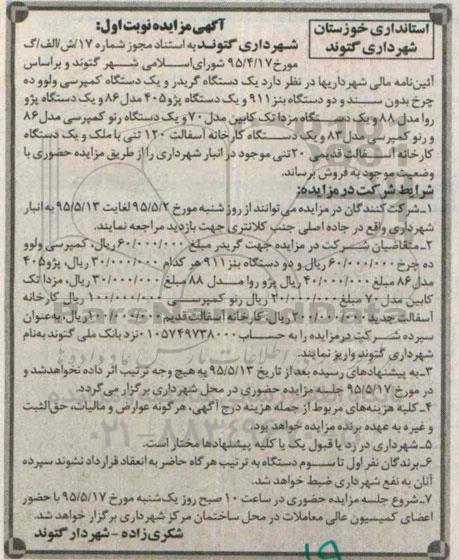 استانداری خوزستان
شهرداری گتوند
آگهی مزایده نوبت اول:
شهرداری گتوند به استناد مجوز شماره ۱۷/ش/الف/گ
مورخ ۹۵/۴/۱۷ شورای اسلامی شهر گتوند و براساس
آئین‌نامه مالی شهرداریها در نظر دارد یک دستگاه گریدر و یک دستگاه کمپرسی ولوو ده
چرخ بدون سند و دو دستگاه بنز ۹۱۱ و یک دستگاه پژو ۴۰۵ مدل ۸۶ و یک دستگاه پژو
روا مدل ۸۸ و یک دستگاه مزدا تک کابین مدل ۷۰ و یک دستگاه رنو کمپرسی مدل ۸۶
و رنو کمپرسی مدل ۸۳ و یک دستگاه کارخانه آسفالت ۱۲۰ تنی با ملک و یک دستگاه
کارخانه آسفالت قدیمی ۲۰ تنی موجود در انبار شهرداری را از طریق مزایده حضوری با
وضعیت موجود به فروش برساند.
شرایط شرکت در مزایده:
۱-شرکت کنندگان در مزایده می‌توانند از روز شنبه مورخ ۹۵/۵/۲ لغایت ۹۵/۵/۱۳ به انبار
شهرداری واقع در جاده اصلی جنب کلانتری جهت بازدید مراجعه نمایند.
۲-متقاضیان شرکت در مزایده جهت گریدر مبلغ ۶۰/۰۰۰/۰۰۰ ریال، کمپرسی ولوو
ده چرخ ۶۰/۰۰۰/۰۰۰ ریال و دو دستگاه بنز ۹۱۱ هر کدام ۳۰/۰۰۰/۰۰۰ ریال، پژو ۴۰۵
مدل ۸۶ مبلغ ۴۰/۰۰۰/۰۰۰ ریال پژو روا مدل ۸۸ مبلغ ۳۰/۰۰۰/۰۰۰ ریال، مزدا تک
کابین مدل ۷۰ مبلغ ۲۰/۰۰۰/۰۰۰ ریال رنو کمپرسی ۱۰۰/۰۰۰/۰۰۰ ریال کارخانه
آسفالت جدید ۲۰۰/۰۰۰/۰۰۰ ریال، کارخانه آسفالت قدیم ۱۰۰/۰۰۰/۰۰۰ ریال، به عنوان
سپرده شرکت در مزایده را به حساب ۰۱۰۵۷۴۹۷۳۸۰۰۰ نزد بانک ملی گتوند به نام
شهرداری گتوند واریز نمایند.
۳-به پیشنهادهای رسیده بعد از تاریخ ۹۵/۵/۱۳ به هیچ وجه ترتیب اثر داده نخواهد شد و
در مورخ ۹۵/۵/۱۷ جلسه مزایده حضوری در محل شهرداری برگزار می‌گردد.
۴-کلیه هزینه‌های مربوط از جمله هزینه درج آگهی، هر گونه عوارض و مالیات، حق الثبت
و غیره به عهده برنده مزایده خواهد بود.
۵-شهرداری در رد یا قبول یک یا کلیه پیشنهادها مختار است.
۶-برندگان نفر اول تا سوم دستگاه به ترتیب هر گاه حاضر به انعقاد قرارداد نشوند سپرده
آنان به نفع شهرداری ضبط خواهد شد.
۷-شروع جلسه مزایده حضوری در ساعت ۱۰ صبح روز یک‌شنبه مورخ ۹۵/۵/۱۷ با حضور
اعضای کمیسیون عالی معاملات در محل ساختمان مرکز شهرداری برگزار خواهد شد.
شکری‌زاده - شهردار گتوند
۱۹